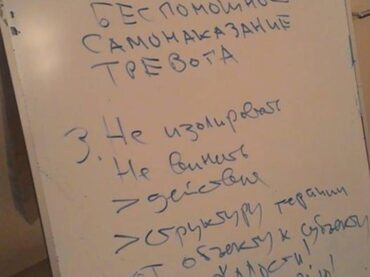 БЕСПОМОЩНОЕ
САМОНАКАЗАНИЕ
ТРЕВОГА
3. Не изолировать
Не винить
> действия
> структуру терапии
от объекта к субъекту